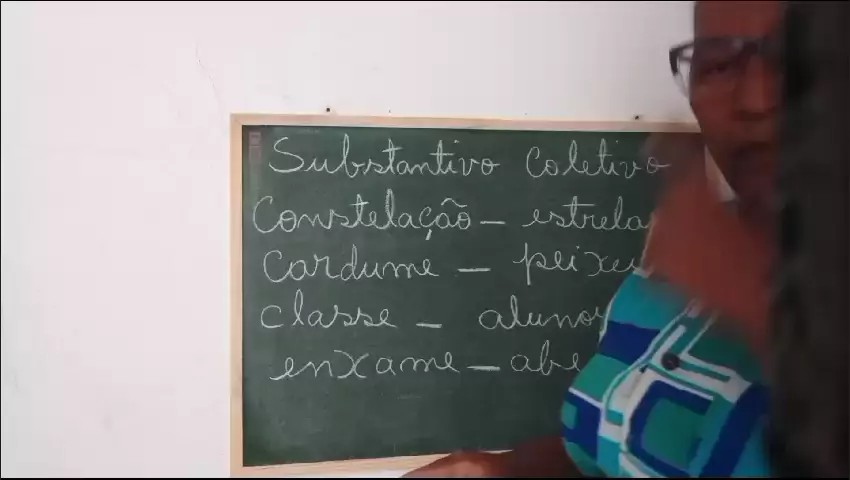 Substantivo Coletivo
Constelação - estrelas
Cardume - peixe
classe - alunos
enxame - abe